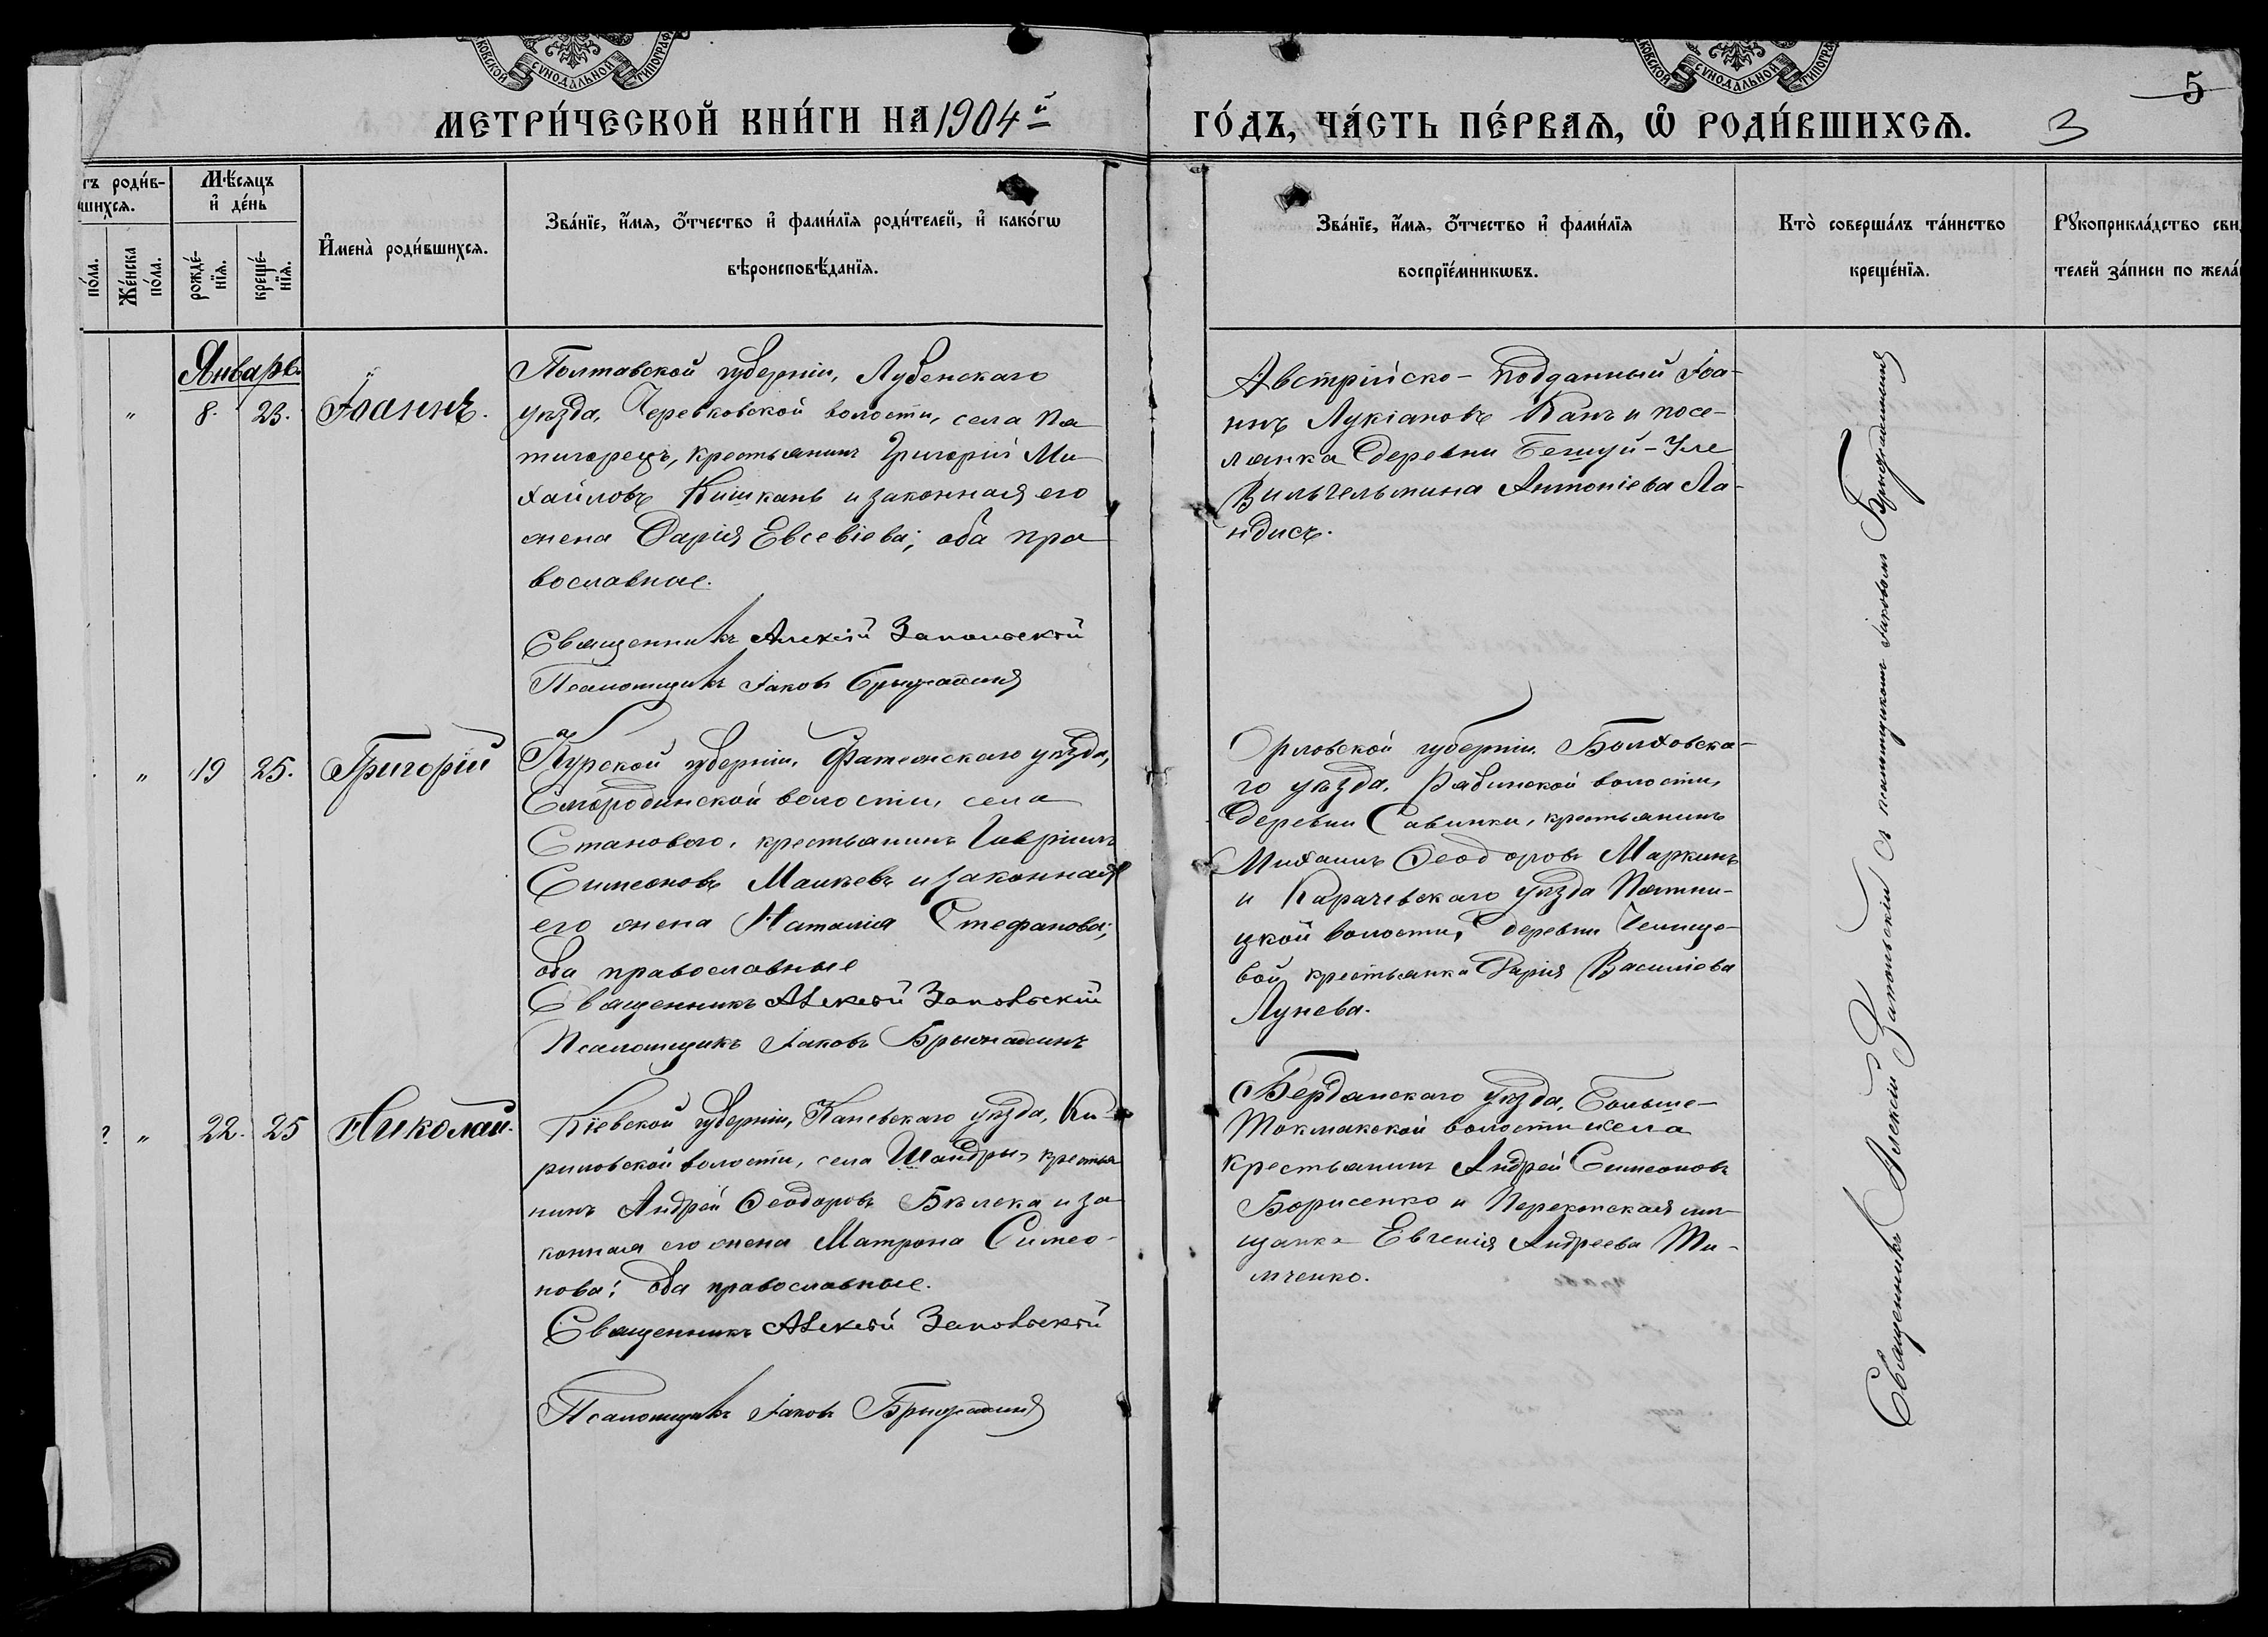 КОВСКОЙ СѴНОДАЛЬНОЙ ТИПОГРАФ
КОВСКОЙ СѴНОДАЛЬНОЙ ТИПОГРА
5
МЕТРИ́ЧЕСКОЙ КНИ́ГИ НА 1904й
ГО́ДЪ, ЧА́СТЬ ПЕ́РВАѦ, Ѡ҆ РОДИ́ВШИХСѦ. 3
тъ роди́в-
шихсѧ.
по́ла.
Же́нска по́ла.
Мѣ́сяцъ
и҆ де́нь
рожде́-
нїѧ.
креще́-
нїѧ.
И҆мена̀ роди́вшихсѧ.
Зва́нїе, и҆́мѧ, ѻ҆́тчество и҆ фами́лїѧ роди́телей, и҆ како́гѡ
вѣроисповѣ́данїѧ.
Зва́нїе, и҆́мѧ, ѻ҆́тчество и҆ фами́лїѧ
воспрїе́мникѡвъ.
Кто̀ соверша́лъ та́инство
креще́нїѧ.
Рꙋкоприкла́дство сви
телей за́писи по жела́
Январь.
" 8. 23. Іоаннъ.
Полтавской губерніи, Лубенскаго
уѣзда, Черевковской волости, села Пя
тигорецъ, крестьянинъ Григорій Ми
хайловъ Кишкань и законная его
жена Дарія Евсевіева; оба пра
вославные.
Священникъ Алексій Запольскій
Псаломщикъ Іаковъ Брыжатинъ
Австрійско-подданный Іоа-
ннъ Лукіановъ Канъ и посе-
лянка деревни Бешуй-Эле
Вильгельмина Антоніева Ла-
ндисъ.
" 19 25. Григорій
Курской губерніи, Фатежскаго уѣзда,
Смородинской волости, села
Становаго, крестьянинъ Гавріилъ
Симеоновъ Малѣевъ и законная
его жена Наталія Стефанова;
оба православные
Священникъ Алексій Запольскій
Псаломщикъ Іаковъ Брыжатинъ
Орловской губерніи Болховска-
го уѣзда, Рябинской волости,
деревни Савинки, крестьянинъ
Михаилъ Ѳеодоровъ Маркинъ
и Карачевскаго уѣзда Пятни-
цкой волости, деревни
вой крестьянка Дарія Василіева
Лунева.
" 22. 25 Николай.
Кіевской губерніи, Каневскаго уѣзда, Ки-
риловской волости, села Шандры, крестья
нинъ Андрей Ѳеодоровъ Бѣлека и за
конная его жена Матрона Симео-
нова; оба православные.
Священникъ Алексій Запольскій
Псаломщикъ Іаковъ Брыжатинъ
Бердянскаго уѣзда, Больше-
Токмакской волости села
крестьянинъ Андрей Симеоновъ
Борисенко и Перекопская мѣ-
щанка Евгенія Андреева Ти-
мченко.
Священникъ Алексій Запольскій съ псаломщикомъ Іаковомъ Брыжатинымъ